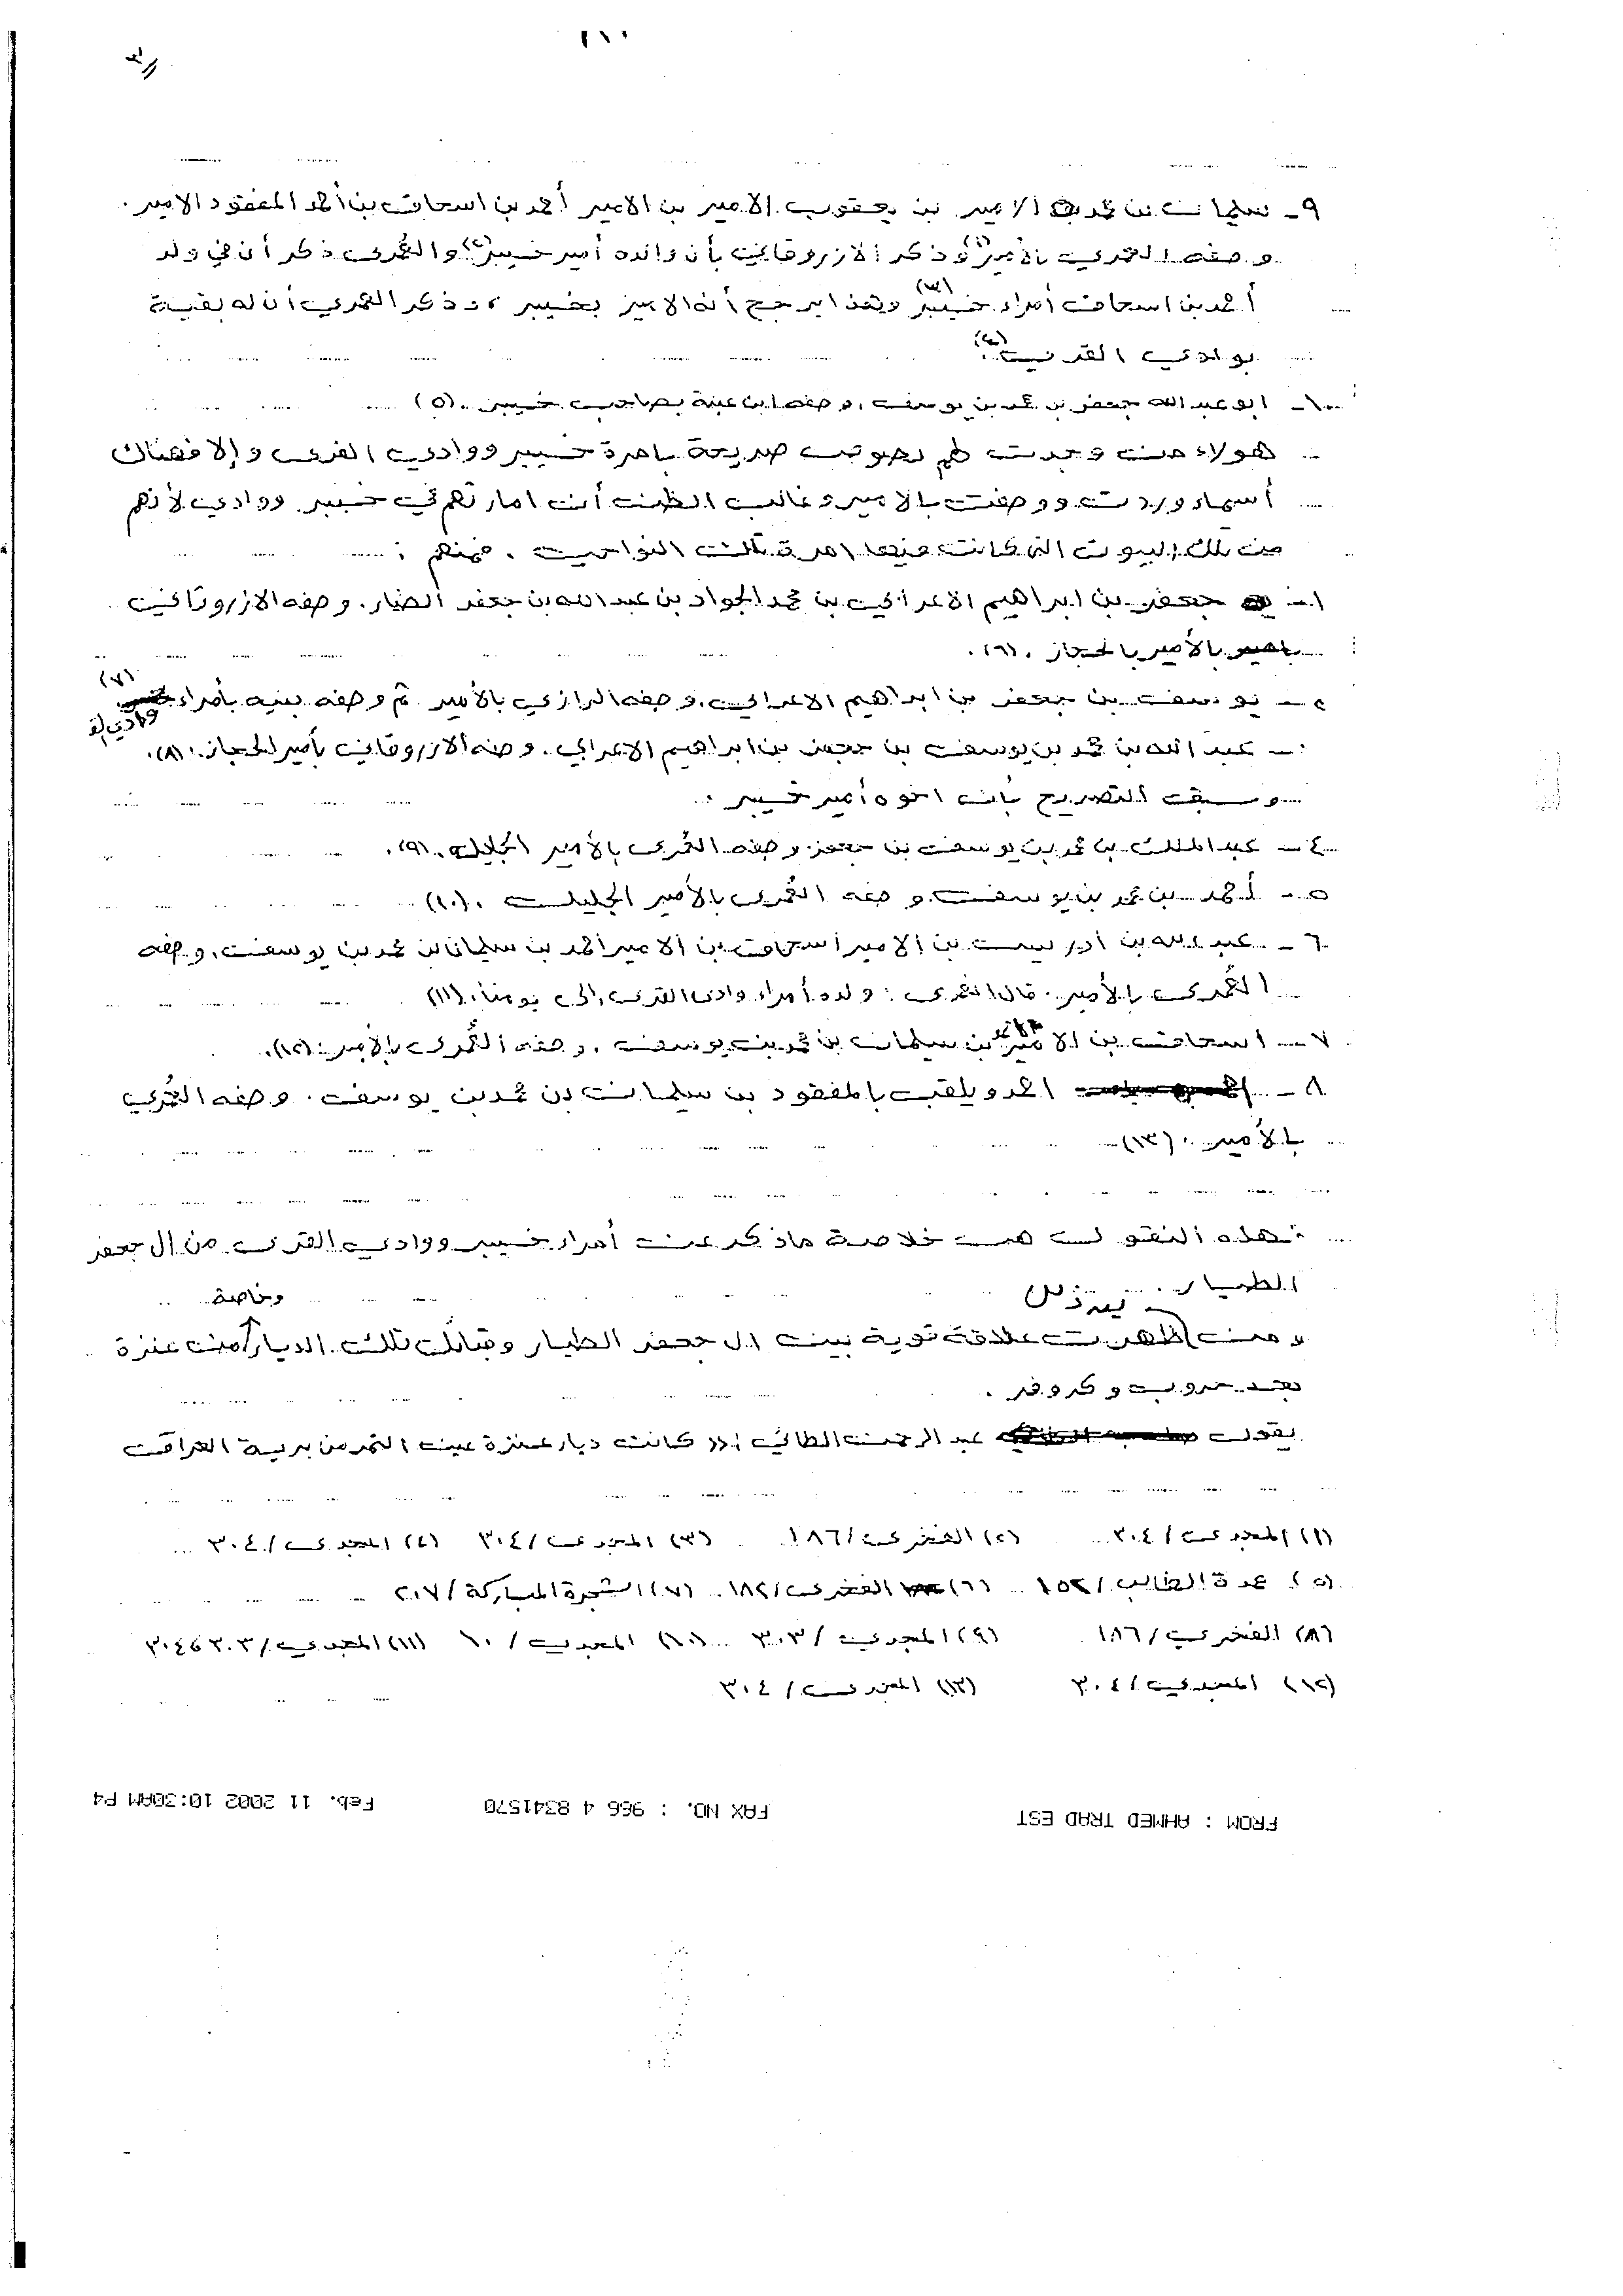 ٩- سليمان بن محمد الامير بن يعقوب الامير بن الامير أحمد بن اسحاق بن أحمد المفقود الامير.
وصفه العمري بالأمير(١) وذكر الازروقاني بأن والده أمير خيبر(٢) والعُمري ذكر أن في ولد
أحمد بن اسحاق أمراء خيبر(٣) وهذا يرجح أنه الامير بخيبر، وذكر العمري أن له بقية
بوادي القرى(٤).
١٠- ابو عبدالله جعفر بن محمد بن يوسف، وصفه ابن عنبة بصاحب خيبر.(٥)
هولاء من وجدت لهم نصوص صريحة بامرة خيبر ووادي القرى وإلا فهناك
أسماء وردت ووصفت بالامير وغالب الظن أن امارتهم في خيبر ووادي لأنهم
من تلك البيوت التي كانت فيها امرة تلك النواحي، فمنهم:
١- جعفر بن ابراهيم الاعرابي بن محمد الجواد بن عبدالله بن جعفر الطيار. وصفه الازروقاني
بالأمير بالحجاز.(٦).
٢- يوسف بن جعفر بن ابراهيم الاعرابي. وصفه الرازي بالأمير ثم وصفه بنيه بأمراء (٧)
عبدالله بن محمد بن يوسف بن جعفر بن ابراهيم الاعرابي. وصفه الازروقاني بأمير الحجاز.(٨).
وسبق التصريح بأن اخوه أمير خيبر.
٤- عبدالملك بن محمد بن يوسف بن جعفر وصفه العُمري بالأمير الجليل.(٩).
٥- أحمد بن محمد بن يوسف وصفه العُمري بالأمير الجليل.(١٠)
٦- عبدالله بن ادريس بن الامير اسحاق بن الامير احمد بن سليمان بن محمد بن يوسف، وصفه
العُمري بالأمير. قال العمري: ولده أمراء وادي القرى إلى يومنا.(١١)
٧- اسحاق بن الامير احمد بن سليمان بن محمد بن يوسف. وصفه العُمري بالأمير.(١٢).
٨- احمد ويلقب بالمفقود بن سليمان بن محمد بن يوسف. وصفه العُمري
بالأمير.(١٣)
هذه النقول هي خلاصة ماذكر عن أمراء خيبر ووادي القرى من ال جعفر
الطيار.
ومن ظهرت علاقة قوية بين ال جعفر الطيار وقبائل تلك الديار وخاصة من عنزة
بعد حروب وكر وفر.
يقول عبد الرحمن الطائي: (( كانت ديار عنزة عين التمر من برية العراق
(١) المجدي/٣٠٤ (٢) الفخري/١٨٦ (٣) المجدي/٣٠٤ (٤) المجدي/٣٠٤
(٥) عمدة الطالب/٥٢ (٦) الفخري/١٨٢ (٧) الشجرة المباركة/٢٠٧
(٨) الفخري/١٨٦ (٩) المجدي/٣٠٣ (١٠) المجدي/ (١١) المجدي/٣٠٣ ، ٣٠٤
(١٢) المجدي/٣٠٤ (١٣) المجدي/٣٠٤
FROM : AHMED TRAD EST FAX NO. : 966 4 8341570 Feb. 11 2002 10:30AM P4